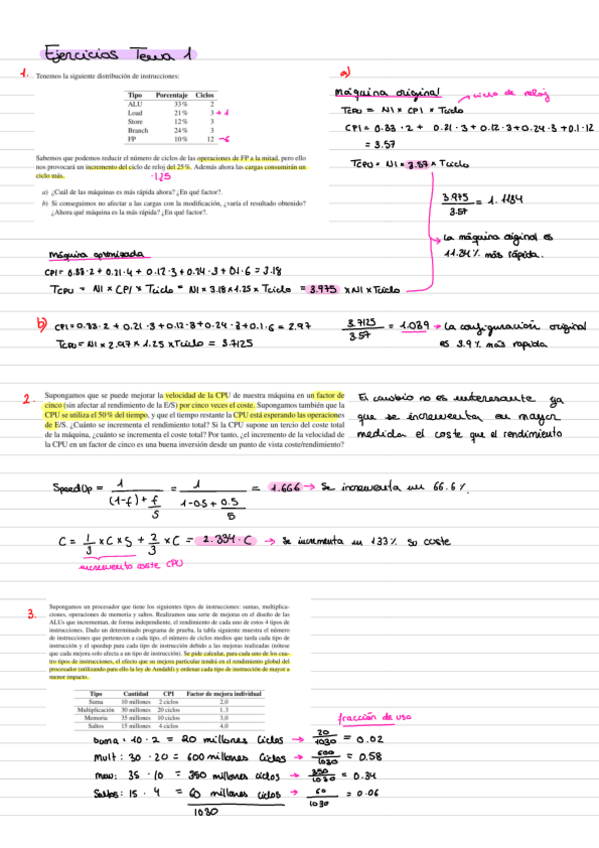 Ejercicios Tema 1
1. Tenemos la siguiente distribución de instrucciones:
Tipo Porcentaje Ciclos
ALU 33% 2
Load 21% 3 +1
Store 12% 3
Branch 24% 3
FP 10% 12 -6
Sabemos que podemos reducir el número de ciclos de las operaciones de FP a la mitad, pero ello
nos provocará un incremento del ciclo de reloj del 25%. Además ahora las cargas consumirán un
ciclo más. ·1.25
a) ¿Cuál de las máquinas es más rápida ahora? ¿En qué factor?.
b) Si conseguimos no afectar a las cargas con la modificación, ¿varía el resultado obtenido?
¿Ahora qué máquina es la más rápida? ¿En qué factor?.
a)
máquina original
ciclo de reloj
TCPU = NI × CPI × Tciclo
CPI = 0.33·2 + 0.21·3 + 0.12·3 + 0.24·3 + 0.1·12
= 3.57
TCPU = NI × 3.57 × Tciclo
3.975/3.57 = 1.1134
La máquina original es
11.34% más rápida.
máquina optimizada
CPI = 0.33·2 + 0.21·4 + 0.12·3 + 0.24·3 + 0.1·6 = 3.18
TCPU = NI × CPI × Tciclo = NI × 3.18 × 1.25 × Tciclo = 3.975 × NI × Tciclo
b) CPI = 0.33·2 + 0.21·3 + 0.12·3 + 0.24·3 + 0.1·6 = 2.97
TCPU = NI × 2.97 × 1.25 × Tciclo = 3.7125
3.7125/3.57 = 1.039 → La configuración original
es 3.9% más rapida
2. Supongamos que se puede mejorar la velocidad de la CPU de nuestra máquina en un factor de
cinco (sin afectar al rendimiento de la E/S) por cinco veces el coste. Supongamos también que la
CPU se utiliza el 50% del tiempo, y que el tiempo restante la CPU está esperando las operaciones
de E/S. ¿Cuánto se incrementa el rendimiento total? Si la CPU supone un tercio del coste total
de la máquina, ¿cuánto se incrementa el coste total? Por tanto, ¿el incremento de la velocidad de
la CPU en un factor de cinco es una buena inversión desde un punto de vista coste/rendimiento?
El cambio no es interesante ya
que se incrementa en mayor
medida el coste que el rendimiento
SpeedUp = 1/((1-f)+f/S) = 1/(1-0.5+0.5/5) = 1.666 → Se incrementa un 66.6%
C = 1/3 × C × 5 + 2/3 × C = 2.334·C → Se incrementa en 133% su coste
incremento coste CPU
3. Supongamos un procesador que tiene los siguientes tipos de instrucciones: sumas, multiplica-
ciones, operaciones de memoria y saltos. Realizamos una serie de mejoras en el diseño de las
ALUs que incrementan, de forma independiente, el rendimiento de cada uno de estos 4 tipos de
instrucciones. Dado un determinado programa de prueba, la tabla siguiente muestra el número
de instrucciones que pertenecen a cada tipo, el número de ciclos medios que tarda cada tipo de
instrucción y el speedup para cada tipo de instrucción debido a las mejoras realizadas (nótese
que cada mejora solo afecta a un tipo de instrucción). Se pide calcular, para cada uno de los cua-
tro tipos de instrucciones, el efecto que su mejora particular tendrá en el rendimiento global del
procesador (utilizando para ello la ley de Amdahl) y ordenar cada tipo de instrucción de mayor a
menor impacto.
Tipo Cantidad CPI Factor de mejora individual
Suma 10 millones 2 ciclos 2,0
Multiplicación 30 millones 20 ciclos 1,3
Memoria 35 millones 10 ciclos 3,0
Saltos 15 millones 4 ciclos 4,0
fracción de uso
Suma: 10 · 2 = 20 millones ciclos → 20/1030 = 0.02
Mult: 30 · 20 = 600 millones ciclos → 600/1030 = 0.58
mem: 35 · 10 = 350 millones ciclos → 350/1030 = 0.34
Saltos: 15 · 4 = 60 millones ciclos → 60/1030 = 0.06
1030